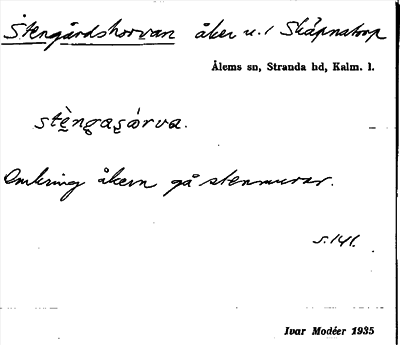 Stengårdshorvan åker u. / Skäpnatorp
Ålems sn, Stranda hd, Kalm. l.
stèngaṣórva.
Omkring åkern gå stenmurar.
s. 141.
Ivar Modéer 1935